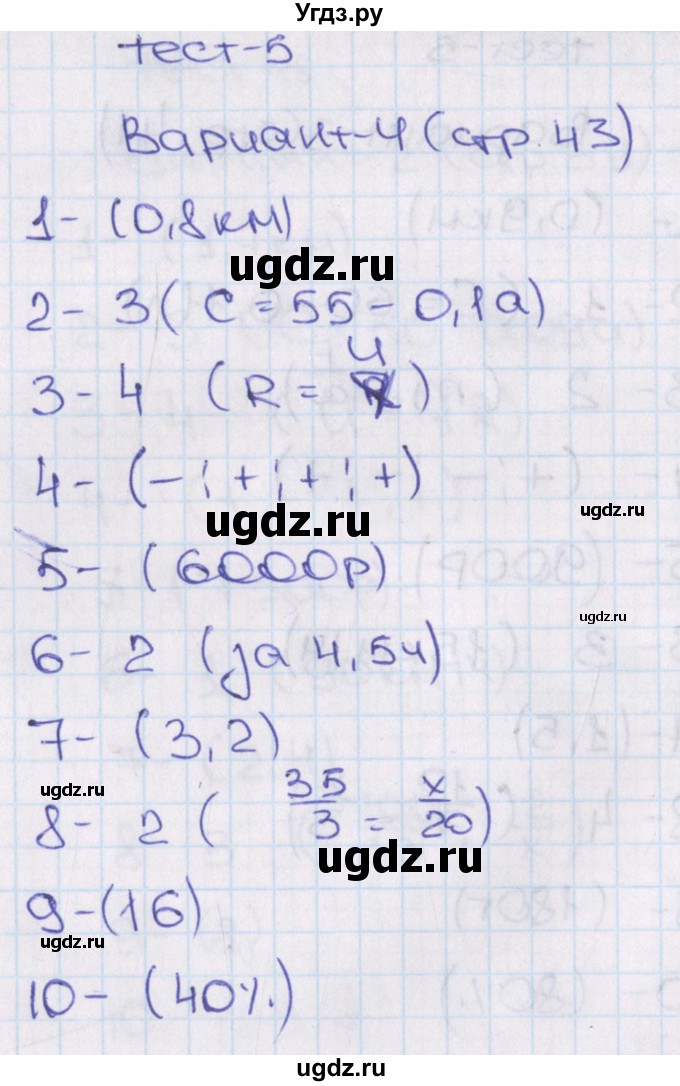 Угдз.ру
тест-5
Вариант-4 (стр. 43)
1- (0,8км)
ugdz.ru
2- 3 ( C = 55 - 0,1a)
3- 4 (R = 4)
4- (-; +; +; +)
ugdz.ru
ugdz.ru
5- (6000р)
ugdz.ru
6- 2 (за 4,5ч)
7- (3,2)
ugdz.ru
8- 2 ( 35/3 = x/20)
ugdz.ru
9-(16)
ugdz.ru
10- (40%)
ugdz.ru